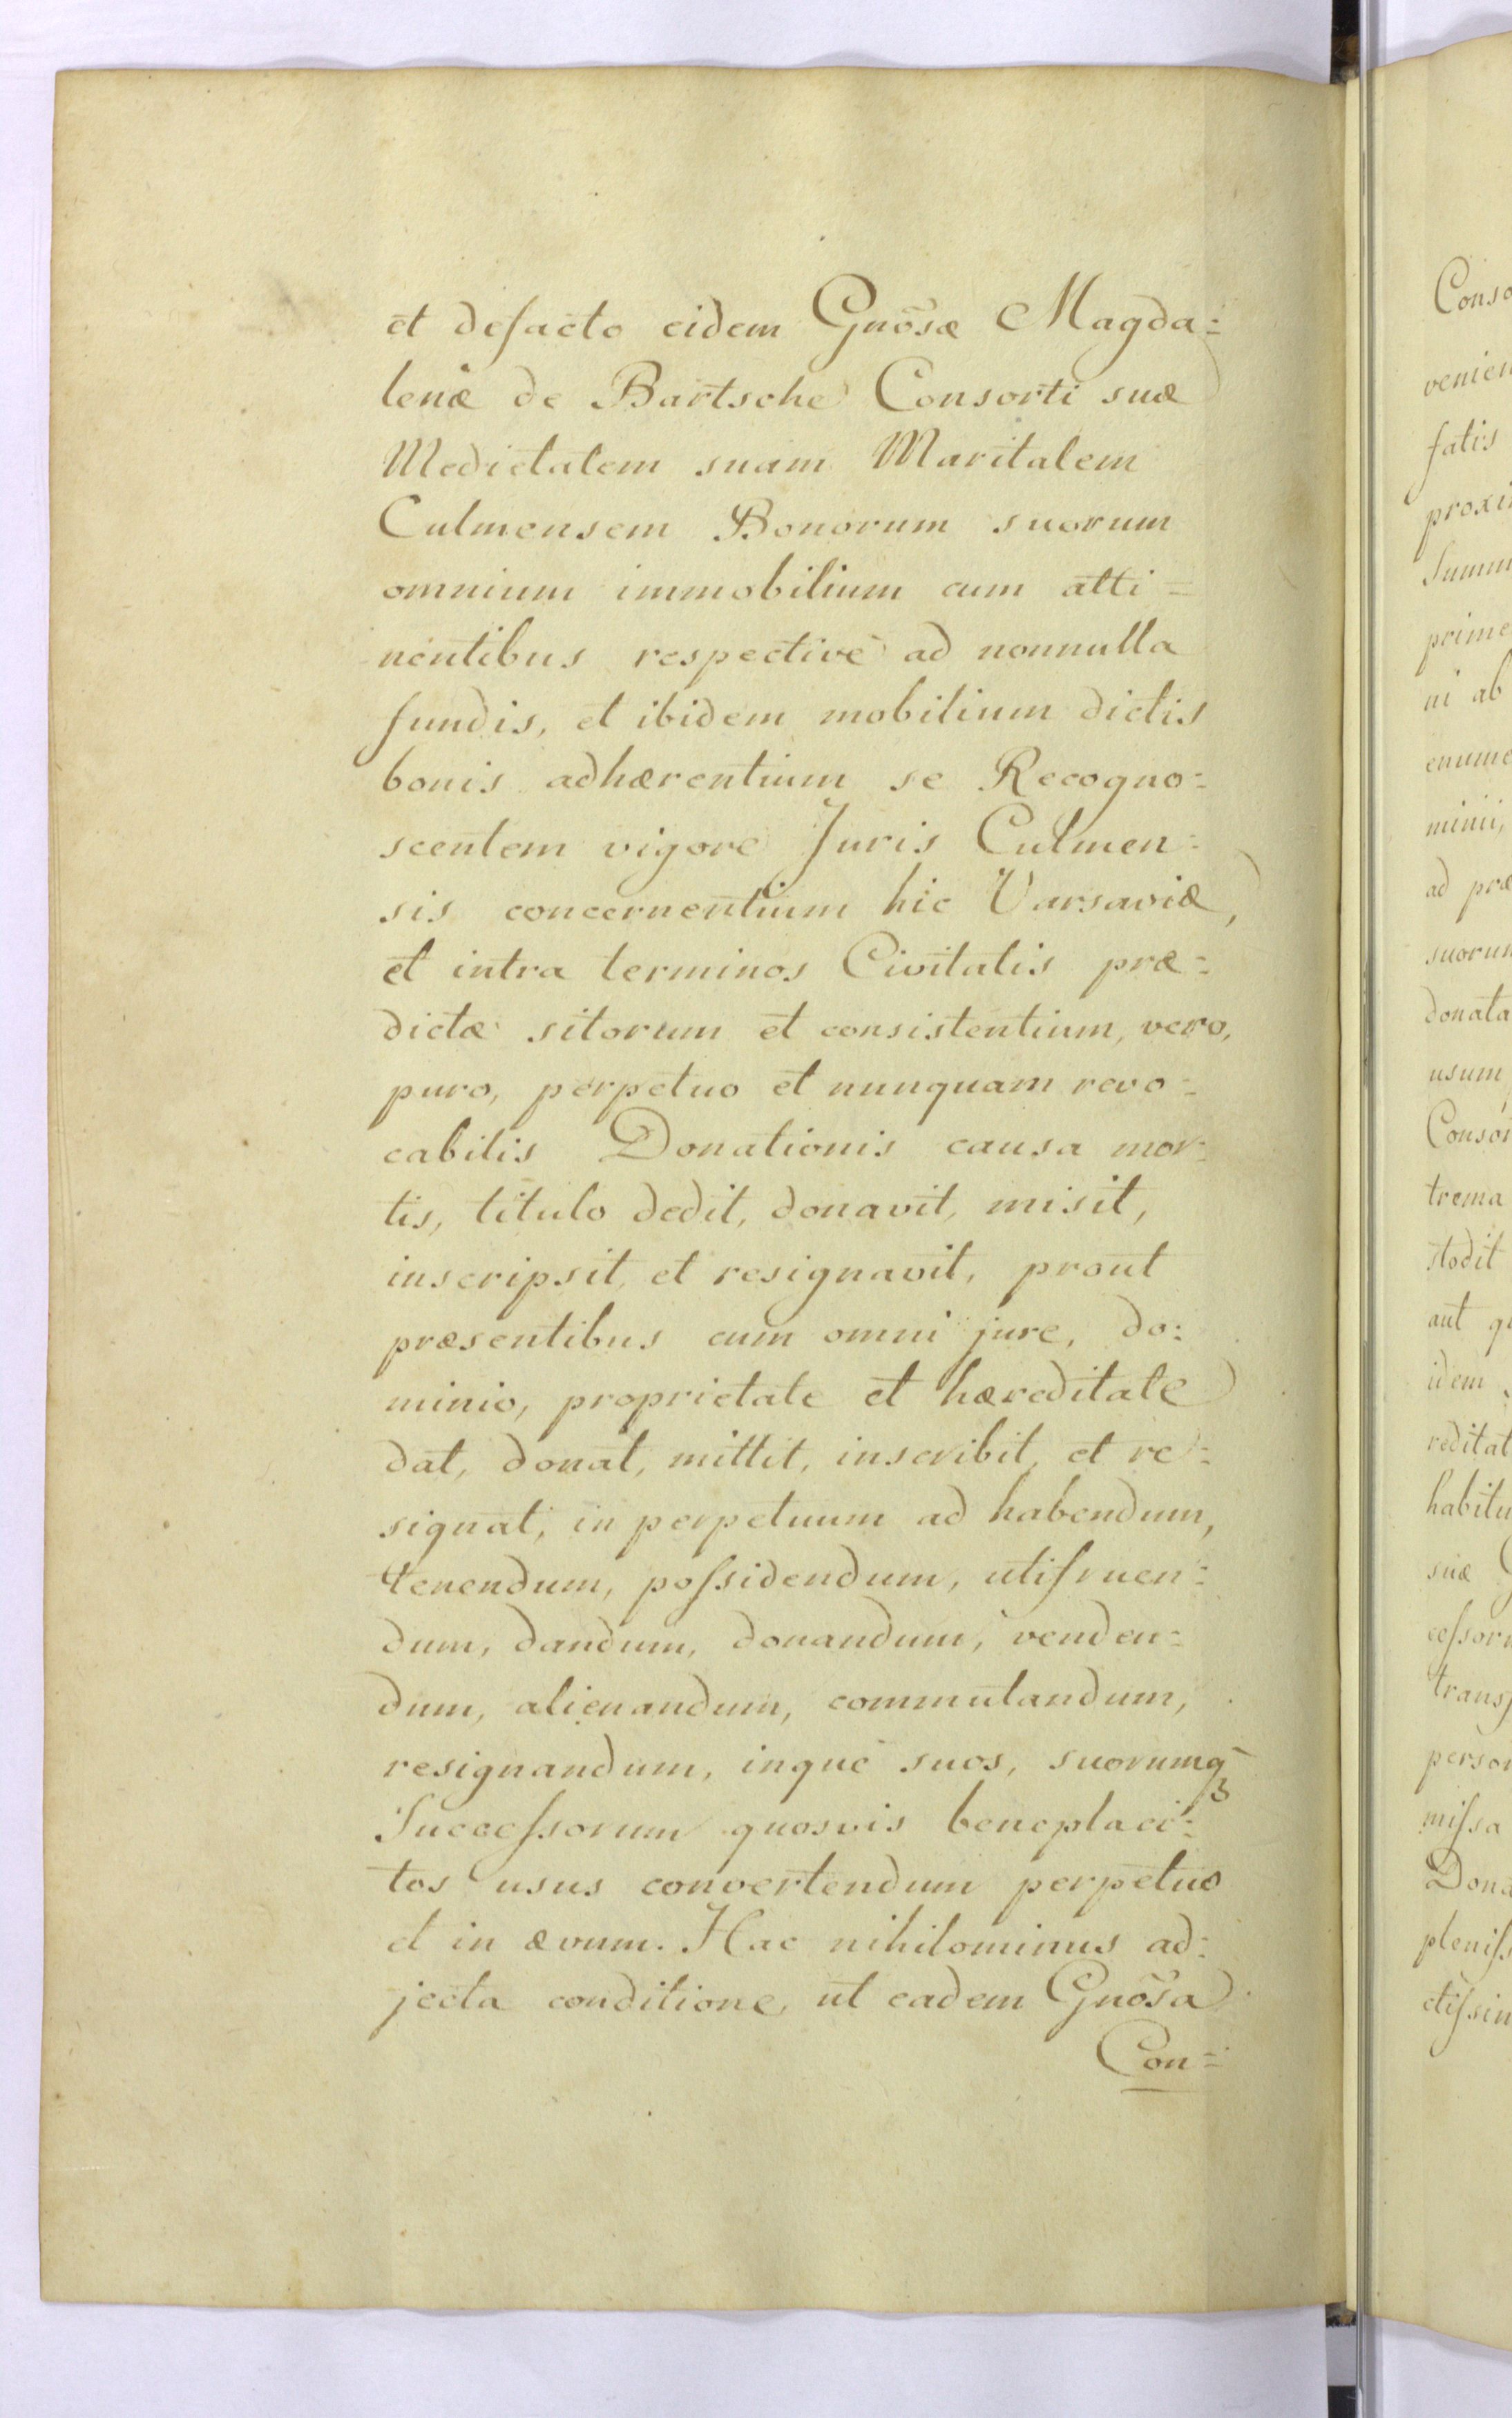 et defacto eidem Gnõsæ Magda=
lenæ de Bartsche Consorti suæ
Medietatem suam Maritalem
Culmensem Bonorum suorum
omnium immobilium cum atti=
nentibus respectivè ad nonnulla
fundis, et ibidem mobilium dictis
bonis adhærentium se Recogno=
scentem vigore Juris Culmen=
sis concernentium hic Varsaviæ,
et intra terminos Civitatis præ=
dictæ sitorum et consistentium, vero,
puro, perpetuo et nunquam revo=
cabilis Donationis causa mor=
tis, titulo dedit, donavit, misit,
inscripsit, et resignavit, prout
præsentibus cum omni jure, do=
minio, proprietate et hæreditate
dat, donat, mittit, inscribit, et re=
signat, in perpetuum ad habendum,
tenendum, poſsidendum, utifruen=
dum, dandum, donandum, venden=
dum, alienandum, commutandum,
resignandum, inquè suos, suorumq̃
Succeſsorum quosvis beneplaci=
tos usus convertendum perpetuo
et in ævum. Hac nihilominus ad=
jecta conditione, ut eadem Gnõsa
Con=
Conso
venien
fatis
proxi
Summ
prime
ni ab
enume
minii,
ad præ
suorum
donata
usum
Consor
trema
stodit
aut qu
idem
reditat
habitu
suæ
ceſsor
trans
person
miſsa
Dona
pleniſs
ctiſsim